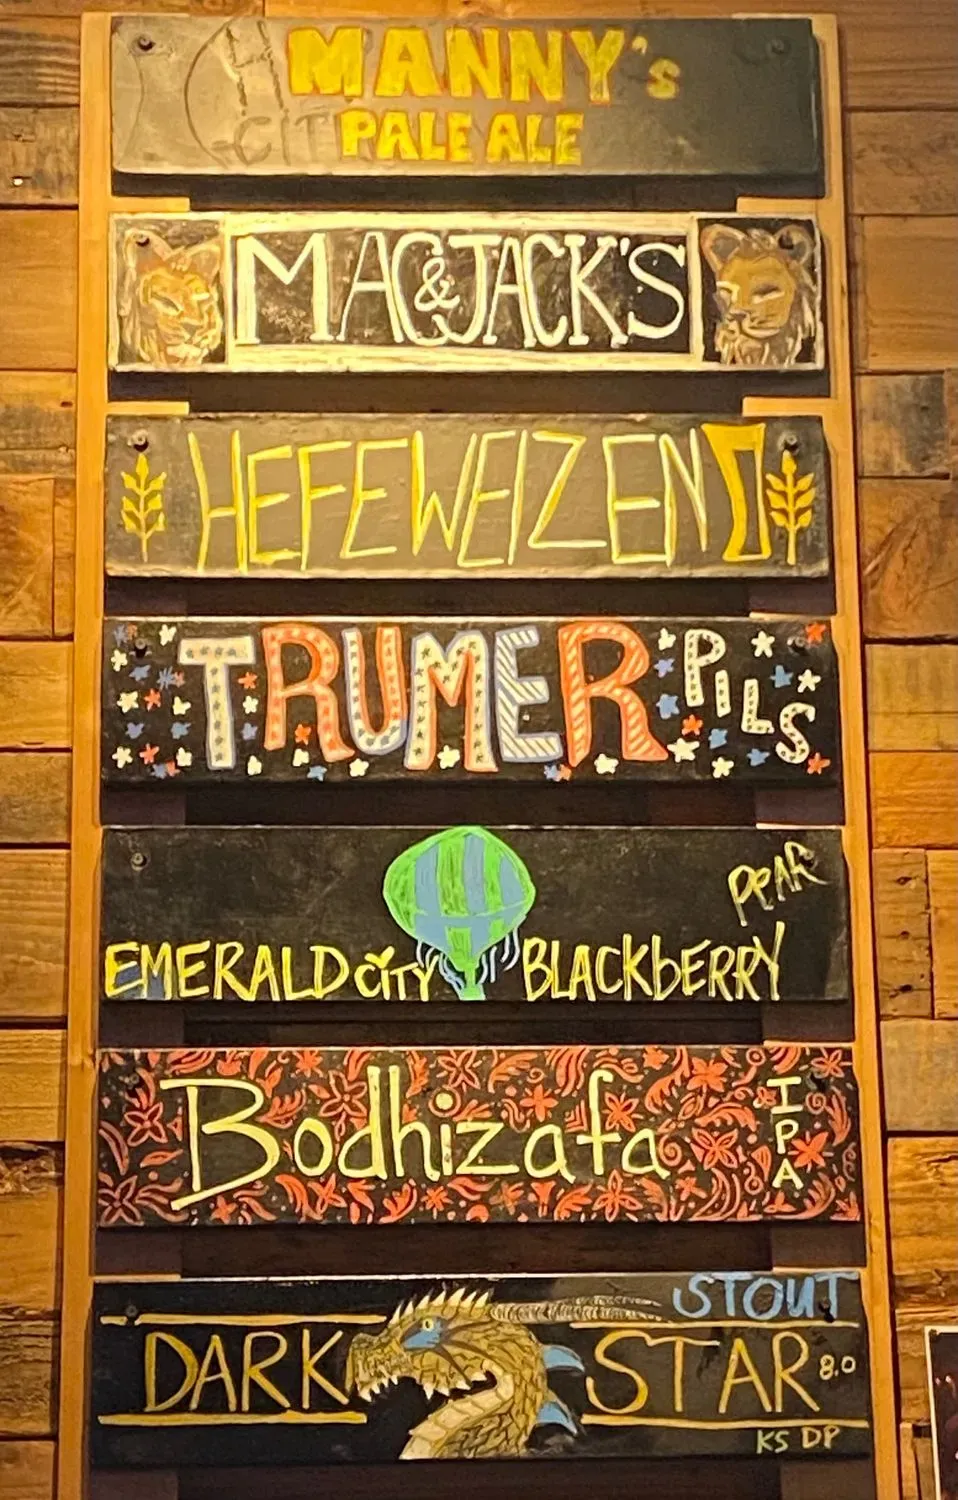 MANNY's
PALE ALE
MAC&JACK'S
HEFEWEIZEN
TRUMER PILS
PEAR
EMERALD CITY BLACKBERRY
Bodhizafa IPA
STOUT
DARK STAR 8.0
KS DP